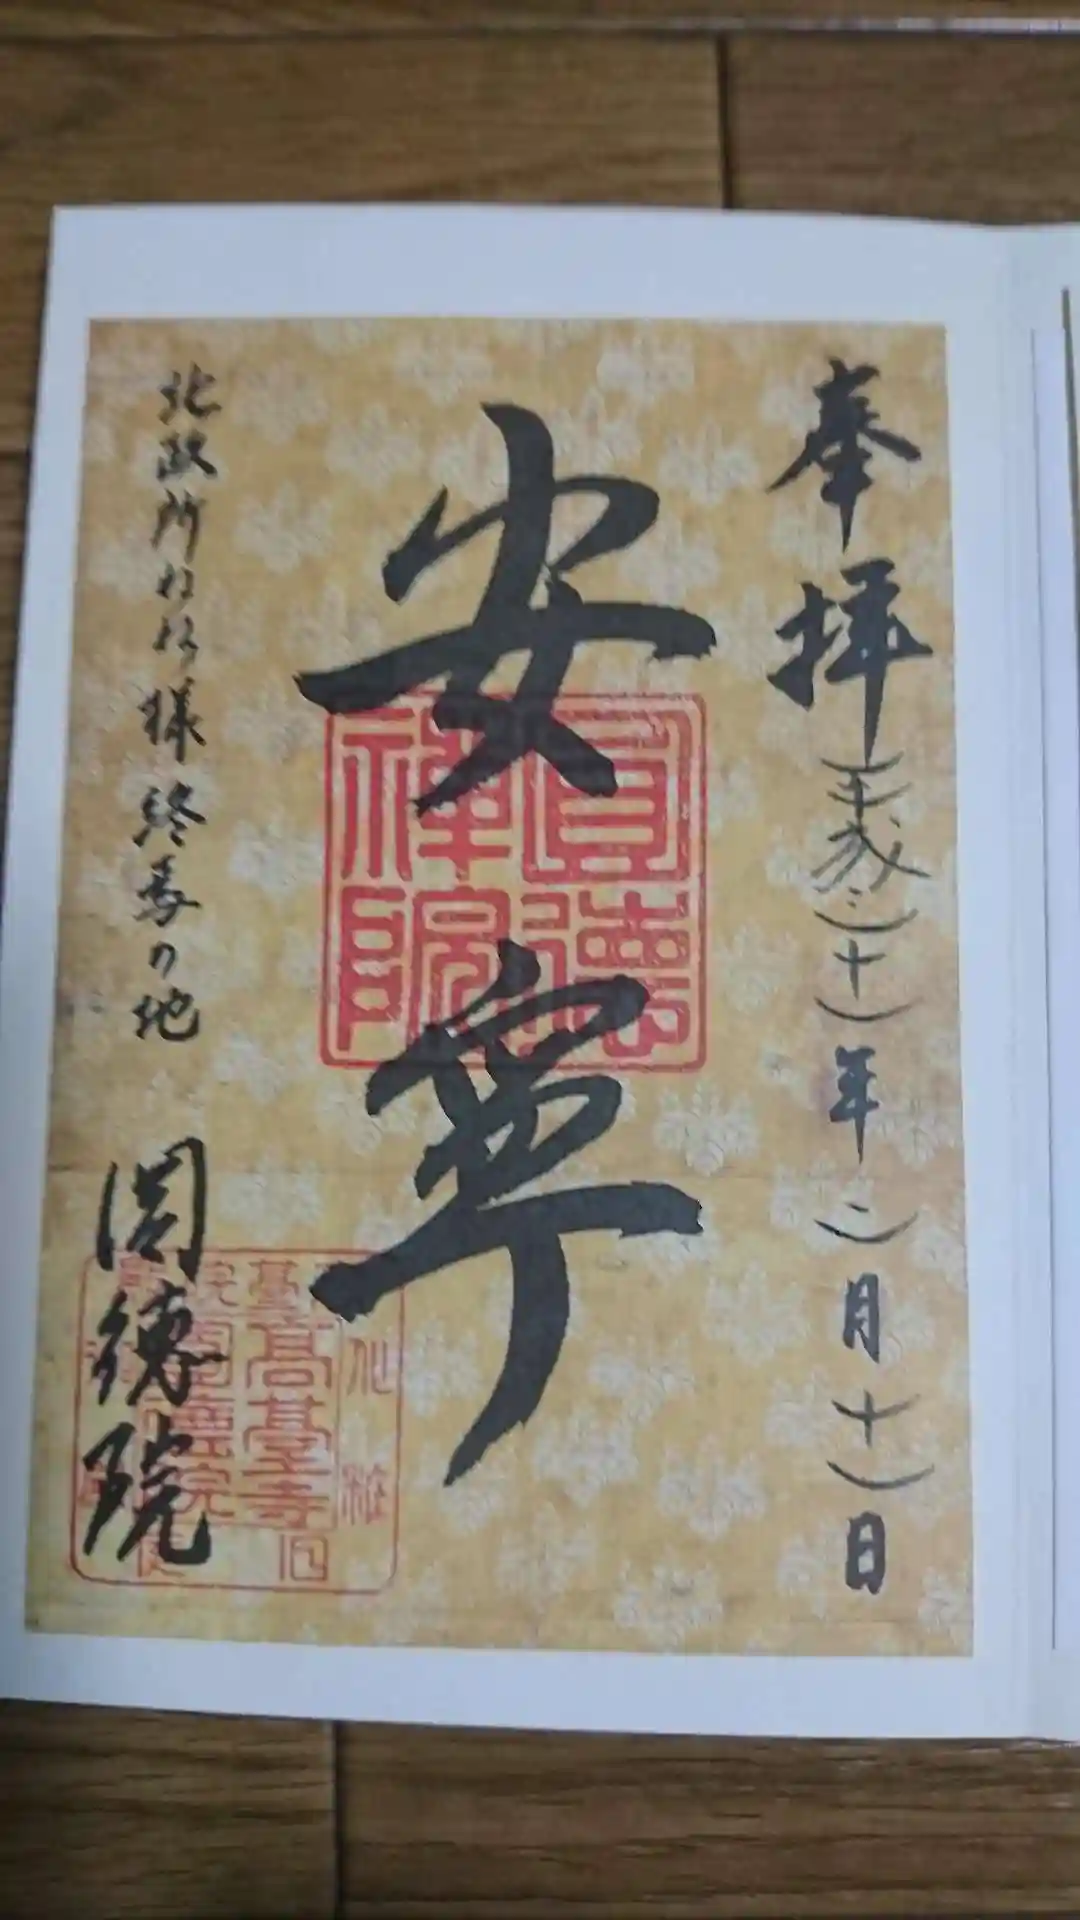 奉拝 平成二十年二月十日
安寧
圓徳禅院
北政所ねね様終焉の地
圓徳院
高臺寺
圓徳院